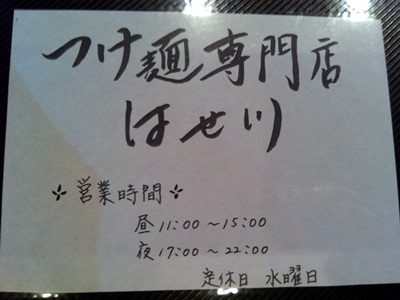 つけ麺専門店
はせ川
営業時間
昼11:00〜15:00
夜17:00〜22:00
定休日 水曜日